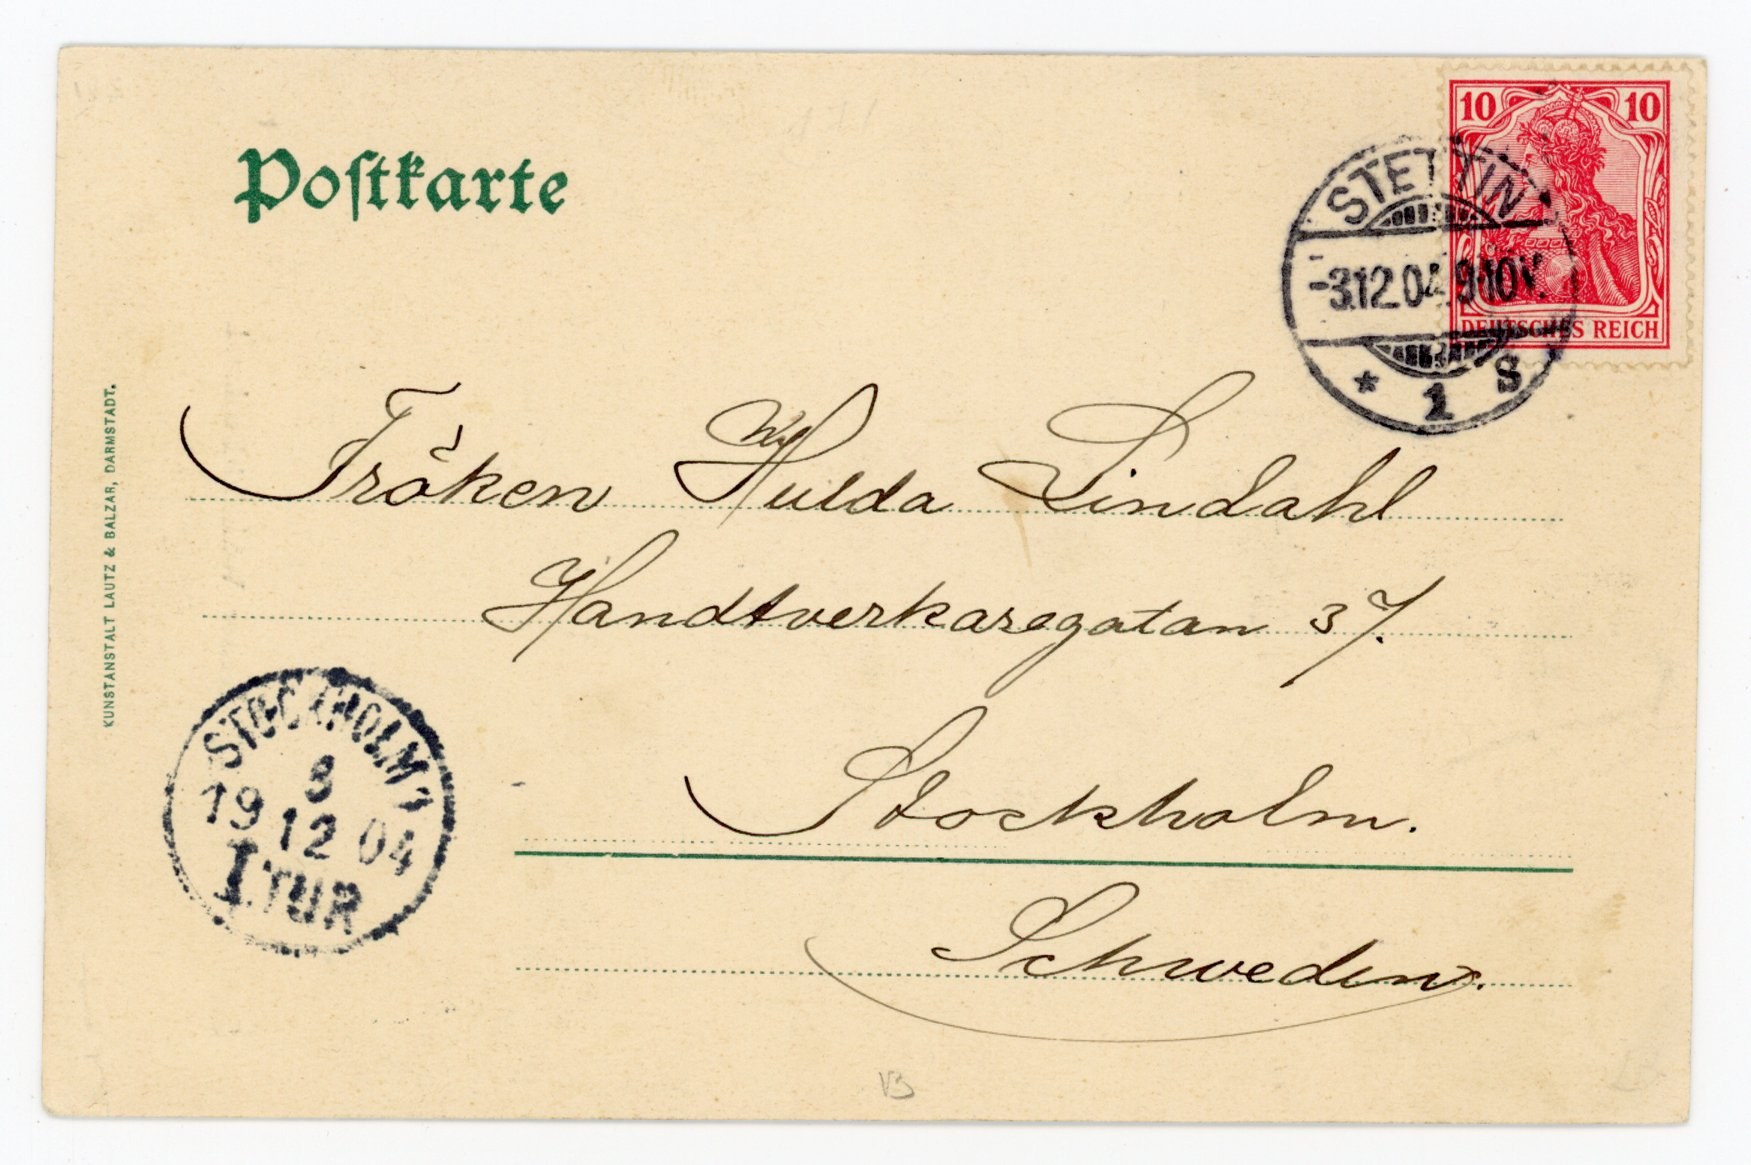 Postkarte
10 10
DEUTSCHES REICH
STETTIN
-3.12.04.9-10V.
* 1 S
Fröken Hulda Lindahl
Handtverkaregatan 37.
Stockholm.
Schweden.
STOCKHOLM 1
8
19 12 04
I.TUR
KUNSTANSTALT LAUTZ & BALZAR, DARMSTADT.